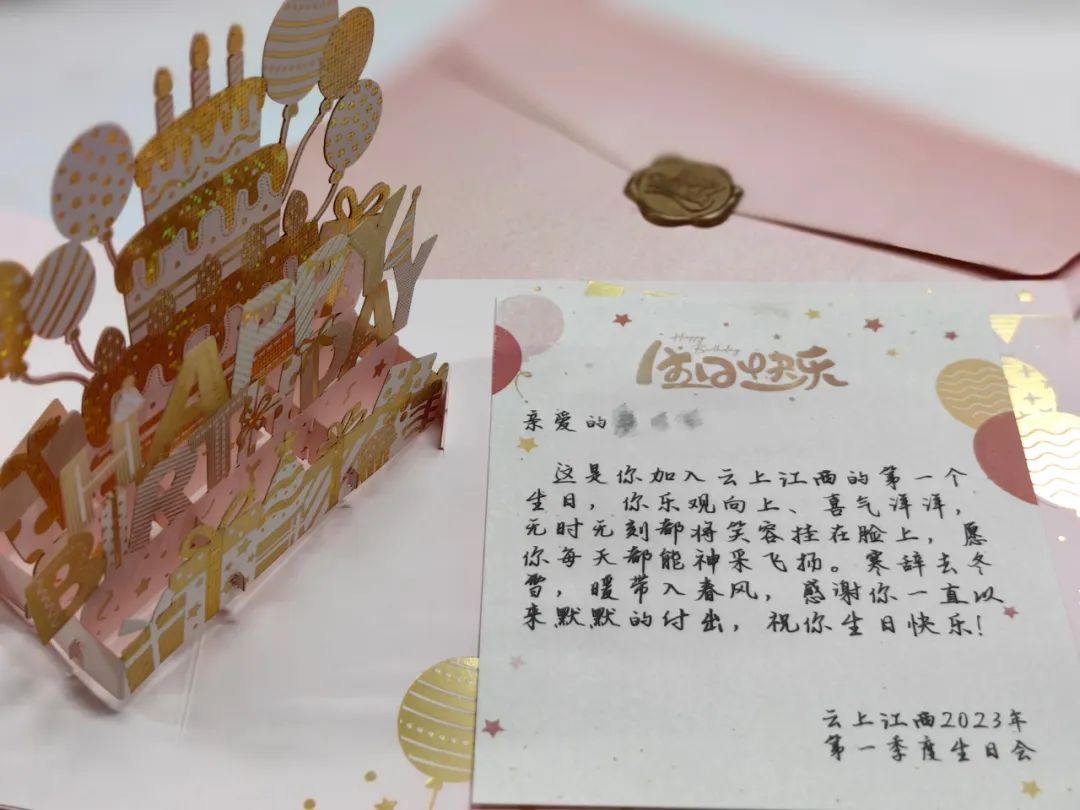 HAPPY
BIRTHDAY
Happy
Birthday
生日快乐
亲爱的
这是你加入云上江西的第一个
生日，你乐观向上、喜气洋洋，
无时无刻都将笑容挂在脸上，愿
你每天都能神采飞扬。寒辞去冬
雪，暖带入春风，感谢你一直以
来默默的付出，祝你生日快乐！
云上江西2023年
第一季度生日会